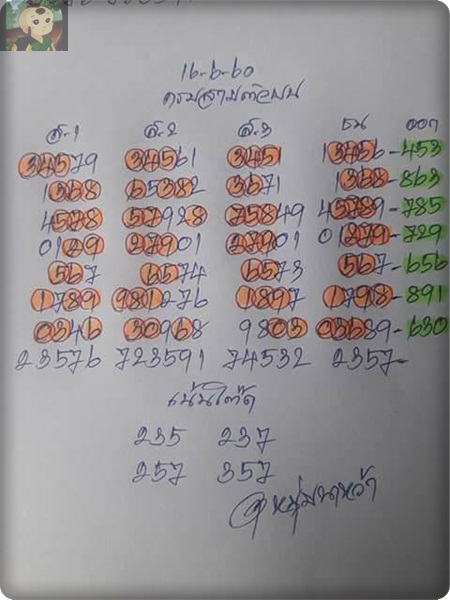 16-6-60
ครบสามตัวบน
ส.1 ส.2 ส.3 ธน ออก
34579 34561 3451 13456-453
1368 65382 3671 1368-863
4578 57928 75849 45789-785
0129 27901 27901 01279-729
567 6574 6573 567-656
1789 981276 1897 1798-891
0346 30968 9803 03689-630
23576 723591 74532 2357-
เน้นโต๊ด
235 237
257 357